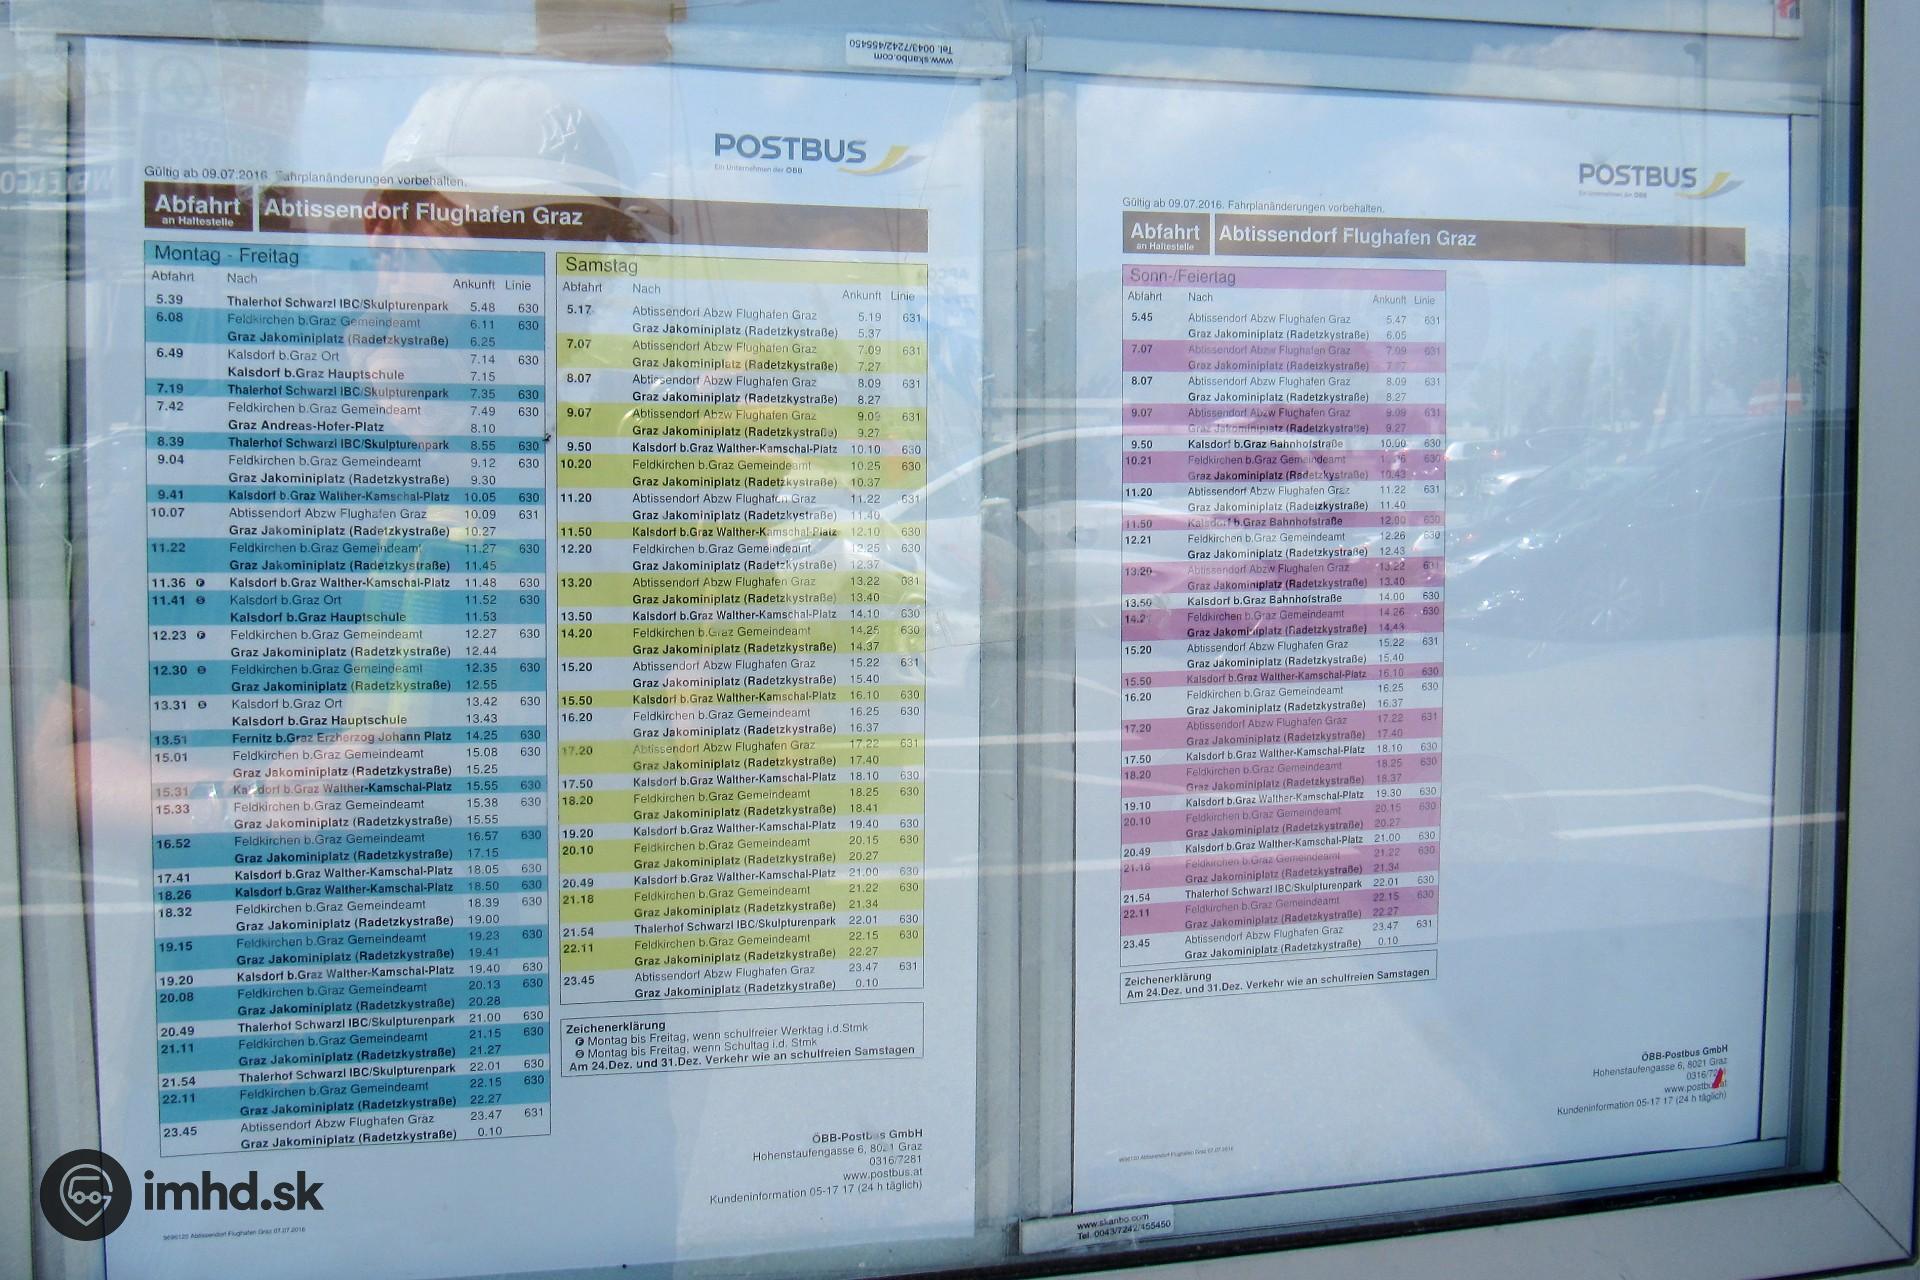 Tel. 0043/7242/455450
www.skanbo.com
POSTBUS
Ein Unternehmen der ÖBB
Gültig ab 09.07.2016. Fahrplanänderungen vorbehalten.
Abfahrt
an Haltestelle
Abtissendorf Flughafen Graz
Montag - Freitag
Abfahrt Nach Ankunft Linie
5.39 Thalerhof Schwarzl IBC/Skulpturenpark 5.48 630
6.08 Feldkirchen b.Graz Gemeindeamt 6.11 630
Graz Jakominiplatz (Radetzkystraße) 6.25
6.49 Kalsdorf b.Graz Ort 7.14 630
Kalsdorf b.Graz Hauptschule 7.15
7.19 Thalerhof Schwarzl IBC/Skulpturenpark 7.35 630
7.42 Feldkirchen b.Graz Gemeindeamt 7.49 630
Graz Andreas-Hofer-Platz 8.10
8.39 Thalerhof Schwarzl IBC/Skulpturenpark 8.55 630
9.04 Feldkirchen b.Graz Gemeindeamt 9.12 630
Graz Jakominiplatz (Radetzkystraße) 9.30
9.41 Kalsdorf b.Graz Walther-Kamschal-Platz 10.05 630
10.07 Abtissendorf Abzw Flughafen Graz 10.09 631
Graz Jakominiplatz (Radetzkystraße) 10.27
11.22 Feldkirchen b.Graz Gemeindeamt 11.27 630
Graz Jakominiplatz (Radetzkystraße) 11.45
11.36 F Kalsdorf b.Graz Walther-Kamschal-Platz 11.48 630
11.41 S Kalsdorf b.Graz Ort 11.52 630
Kalsdorf b.Graz Hauptschule 11.53
12.23 F Feldkirchen b.Graz Gemeindeamt 12.27 630
Graz Jakominiplatz (Radetzkystraße) 12.44
12.30 S Feldkirchen b.Graz Gemeindeamt 12.35 630
Graz Jakominiplatz (Radetzkystraße) 12.55
13.31 S Kalsdorf b.Graz Ort 13.42 630
Kalsdorf b.Graz Hauptschule 13.43
13.51 Fernitz b.Graz Erzherzog Johann Platz 14.25 630
15.01 Feldkirchen b.Graz Gemeindeamt 15.08 630
Graz Jakominiplatz (Radetzkystraße) 15.25
15.31 Kalsdorf b.Graz Walther-Kamschal-Platz 15.55 630
15.33 Feldkirchen b.Graz Gemeindeamt 15.38 630
Graz Jakominiplatz (Radetzkystraße) 15.55
16.52 Feldkirchen b.Graz Gemeindeamt 16.57 630
Graz Jakominiplatz (Radetzkystraße) 17.15
17.41 Kalsdorf b.Graz Walther-Kamschal-Platz 18.05 630
18.26 Kalsdorf b.Graz Walther-Kamschal-Platz 18.50 630
18.32 Feldkirchen b.Graz Gemeindeamt 18.39 630
Graz Jakominiplatz (Radetzkystraße) 19.00
19.15 Feldkirchen b.Graz Gemeindeamt 19.23 630
Graz Jakominiplatz (Radetzkystraße) 19.41
19.20 Kalsdorf b.Graz Walther-Kamschal-Platz 19.40 630
20.08 Feldkirchen b.Graz Gemeindeamt 20.13 630
Graz Jakominiplatz (Radetzkystraße) 20.28
20.49 Thalerhof Schwarzl IBC/Skulpturenpark 21.00 630
21.11 Feldkirchen b.Graz Gemeindeamt 21.15 630
Graz Jakominiplatz (Radetzkystraße) 21.27
21.54 Thalerhof Schwarzl IBC/Skulpturenpark 22.01 630
22.11 Feldkirchen b.Graz Gemeindeamt 22.15 630
Graz Jakominiplatz (Radetzkystraße) 22.27
23.45 Abtissendorf Abzw Flughafen Graz 23.47 631
Graz Jakominiplatz (Radetzkystraße) 0.10
Samstag
Abfahrt Nach Ankunft Linie
5.17 Abtissendorf Abzw Flughafen Graz 5.19 631
Graz Jakominiplatz (Radetzkystraße) 5.37
7.07 Abtissendorf Abzw Flughafen Graz 7.09 631
Graz Jakominiplatz (Radetzkystraße) 7.27
8.07 Abtissendorf Abzw Flughafen Graz 8.09 631
Graz Jakominiplatz (Radetzkystraße) 8.27
9.07 Abtissendorf Abzw Flughafen Graz 9.09 631
Graz Jakominiplatz (Radetzkystraße) 9.27
9.50 Kalsdorf b.Graz Walther-Kamschal-Platz 10.10 630
10.20 Feldkirchen b.Graz Gemeindeamt 10.25 630
Graz Jakominiplatz (Radetzkystraße) 10.37
11.20 Abtissendorf Abzw Flughafen Graz 11.22 631
Graz Jakominiplatz (Radetzkystraße) 11.40
11.50 Kalsdorf b.Graz Walther-Kamschal-Platz 12.10 630
12.20 Feldkirchen b.Graz Gemeindeamt 12.25 630
Graz Jakominiplatz (Radetzkystraße) 12.37
13.20 Abtissendorf Abzw Flughafen Graz 13.22 631
Graz Jakominiplatz (Radetzkystraße) 13.40
13.50 Kalsdorf b.Graz Walther-Kamschal-Platz 14.10 630
14.20 Feldkirchen b.Graz Gemeindeamt 14.25 630
Graz Jakominiplatz (Radetzkystraße) 14.37
15.20 Abtissendorf Abzw Flughafen Graz 15.22 631
Graz Jakominiplatz (Radetzkystraße) 15.40
15.50 Kalsdorf b.Graz Walther-Kamschal-Platz 16.10 630
16.20 Feldkirchen b.Graz Gemeindeamt 16.25 630
Graz Jakominiplatz (Radetzkystraße) 16.37
17.20 Abtissendorf Abzw Flughafen Graz 17.22 631
Graz Jakominiplatz (Radetzkystraße) 17.40
17.50 Kalsdorf b.Graz Walther-Kamschal-Platz 18.10 630
18.20 Feldkirchen b.Graz Gemeindeamt 18.25 630
Graz Jakominiplatz (Radetzkystraße) 18.41
19.20 Kalsdorf b.Graz Walther-Kamschal-Platz 19.40 630
20.10 Feldkirchen b.Graz Gemeindeamt 20.15 630
Graz Jakominiplatz (Radetzkystraße) 20.27
20.49 Kalsdorf b.Graz Walther-Kamschal-Platz 21.00 630
21.18 Feldkirchen b.Graz Gemeindeamt 21.22 630
Graz Jakominiplatz (Radetzkystraße) 21.34
21.54 Thalerhof Schwarzl IBC/Skulpturenpark 22.01 630
22.11 Feldkirchen b.Graz Gemeindeamt 22.15 630
Graz Jakominiplatz (Radetzkystraße) 22.27
23.45 Abtissendorf Abzw Flughafen Graz 23.47 631
Graz Jakominiplatz (Radetzkystraße) 0.10
Zeichenerklärung
F Montag bis Freitag, wenn schulfreier Werktag i.d.Stmk
S Montag bis Freitag, wenn Schultag i.d. Stmk
Am 24.Dez. und 31.Dez. Verkehr wie an schulfreien Samstagen
ÖBB-Postbus GmbH
Hohenstaufengasse 6, 8021 Graz
0316/7281
www.postbus.at
Kundeninformation 05-17 17 (24 h täglich)
9696120 Abtissendorf Flughafen Graz 07.07.2016
POSTBUS
Ein Unternehmen der ÖBB
Gültig ab 09.07.2016. Fahrplanänderungen vorbehalten.
Abfahrt
an Haltestelle
Abtissendorf Flughafen Graz
Sonn-/Feiertag
Abfahrt Nach Ankunft Linie
5.45 Abtissendorf Abzw Flughafen Graz 5.47 631
Graz Jakominiplatz (Radetzkystraße) 6.05
7.07 Abtissendorf Abzw Flughafen Graz 7.09 631
Graz Jakominiplatz (Radetzkystraße) 7.27
8.07 Abtissendorf Abzw Flughafen Graz 8.09 631
Graz Jakominiplatz (Radetzkystraße) 8.27
9.07 Abtissendorf Abzw Flughafen Graz 9.09 631
Graz Jakominiplatz (Radetzkystraße) 9.27
9.50 Kalsdorf b.Graz Bahnhofstraße 10.00 630
10.21 Feldkirchen b.Graz Gemeindeamt 630
Graz Jakominiplatz (Radetzkystraße) 10.43
11.20 Abtissendorf Abzw Flughafen Graz 11.22 631
Graz Jakominiplatz (Radetzkystraße) 11.40
11.50 Kalsdorf b.Graz Bahnhofstraße 12.00 630
12.21 Feldkirchen b.Graz Gemeindeamt 12.26 630
Graz Jakominiplatz (Radetzkystraße) 12.43
13.20 Abtissendorf Abzw Flughafen Graz 13.22 631
Graz Jakominiplatz (Radetzkystraße) 13.40
13.50 Kalsdorf b.Graz Bahnhofstraße 14.00 630
14.21 Feldkirchen b.Graz Gemeindeamt 14.26 630
Graz Jakominiplatz (Radetzkystraße) 14.43
15.20 Abtissendorf Abzw Flughafen Graz 15.22 631
Graz Jakominiplatz (Radetzkystraße) 15.40
15.50 Kalsdorf b.Graz Walther-Kamschal-Platz 16.10 630
16.20 Feldkirchen b.Graz Gemeindeamt 16.25 630
Graz Jakominiplatz (Radetzkystraße) 16.37
17.20 Abtissendorf Abzw Flughafen Graz 17.22 631
Graz Jakominiplatz (Radetzkystraße) 17.40
17.50 Kalsdorf b.Graz Walther-Kamschal-Platz 18.10 630
18.20 Feldkirchen b.Graz Gemeindeamt 18.25 630
Graz Jakominiplatz (Radetzkystraße) 18.37
19.10 Kalsdorf b.Graz Walther-Kamschal-Platz 19.30 630
20.10 Feldkirchen b.Graz Gemeindeamt 20.15 630
Graz Jakominiplatz (Radetzkystraße) 20.27
20.49 Kalsdorf b.Graz Walther-Kamschal-Platz 21.00 630
21.18 Feldkirchen b.Graz Gemeindeamt 21.22 630
Graz Jakominiplatz (Radetzkystraße) 21.34
21.54 Thalerhof Schwarzl IBC/Skulpturenpark 22.01 630
22.11 Feldkirchen b.Graz Gemeindeamt 22.15 630
Graz Jakominiplatz (Radetzkystraße) 22.27
23.45 Abtissendorf Abzw Flughafen Graz 23.47 631
Graz Jakominiplatz (Radetzkystraße) 0.10
Zeichenerklärung
Am 24.Dez. und 31.Dez. Verkehr wie an schulfreien Samstagen
ÖBB-Postbus GmbH
Hohenstaufengasse 6, 8021 Graz
0316/7281
www.postbus.at
Kundeninformation 05-17 17 (24 h täglich)
9696120 Abtissendorf Flughafen Graz 07.07.2016
www.skanbo.com
Tel. 0043/7242/455450
imhd.sk